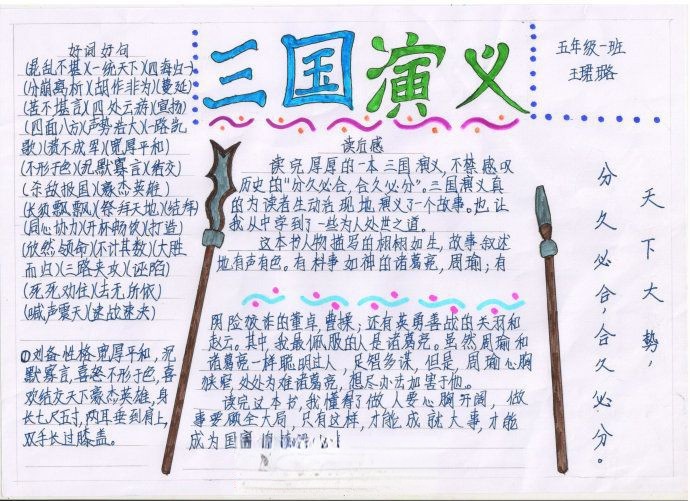 三国演义
五年级一班
王珺璐
好词好句
(混乱不堪)(一统天下)(四海归一)
(分崩离析)(胡作非为)(蔓延)
(苦不堪言)(四处云游)(宣扬)
(四面八方)(声势浩大)(一路凯
歌)(溃不成军)(宽厚平和)
(不形于色)(沉默寡言)(结交)
(杀敌报国)(豪杰英雄)
(长须飘飘)(祭拜天地)(结拜)
(同心协力)(开怀畅饮)(打造)
(欣然领命)(不计其数)(大胜
而归)(三路夹攻)(诬陷)
(死死劝住)(去无所依)
(喊声震天)(速战速决)
①刘备性格宽厚平和,沉
默寡言,喜怒不形于色,喜
欢结交天下豪杰英雄,身
长七尺五寸,两耳垂到肩上,
双手长过膝盖。
读后感
读完厚厚的一本三国演义,不禁感叹
历史的“分久必合,合久必分”。三国演义真
的为读者生动活现地演义了一个故事。也让
我从中学到了一些为人处世之道。
这本书人物描写的栩栩如生,故事叙述
地有声有色。有料事如神的诸葛亮,周瑜;有
阴险狡诈的董卓,曹操;还有英勇善战的关羽和
赵云。其中,我最佩服的人是诸葛亮。虽然周瑜和
诸葛亮一样聪明过人,足智多谋,但是,周瑜心胸
狭窄,处处为难诸葛亮,想尽办法加害于他。
读完这本书,我懂得了做人要心胸开阔,做
事要顾全大局,只有这样,才能成就大事,才能
成为国
天下大势,
分久必合,合久必分。